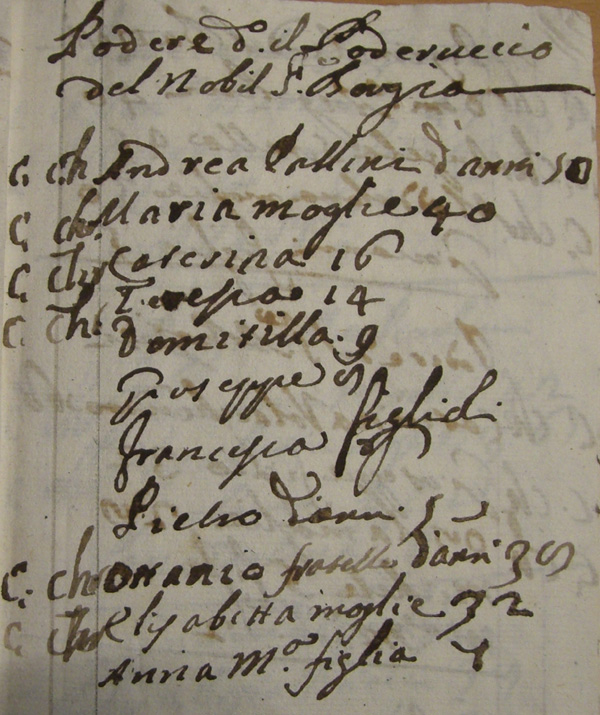 Podere d.o il Poderuccio
del Nobil S.r Borgia
C. ch. Andrea Pallini d'anni 50
C. ch. Maria moglie 40
C. ch. Caterina 16
C. ch. Teresia 14
C. ch. Domitilla 9
Giuseppe 8
Francesca figlioli
Pietro d'anni
C. ch. Ottavio fratello d'anni 38
C. ch. Elisabetta moglie 32
Anna M.a figlia 1